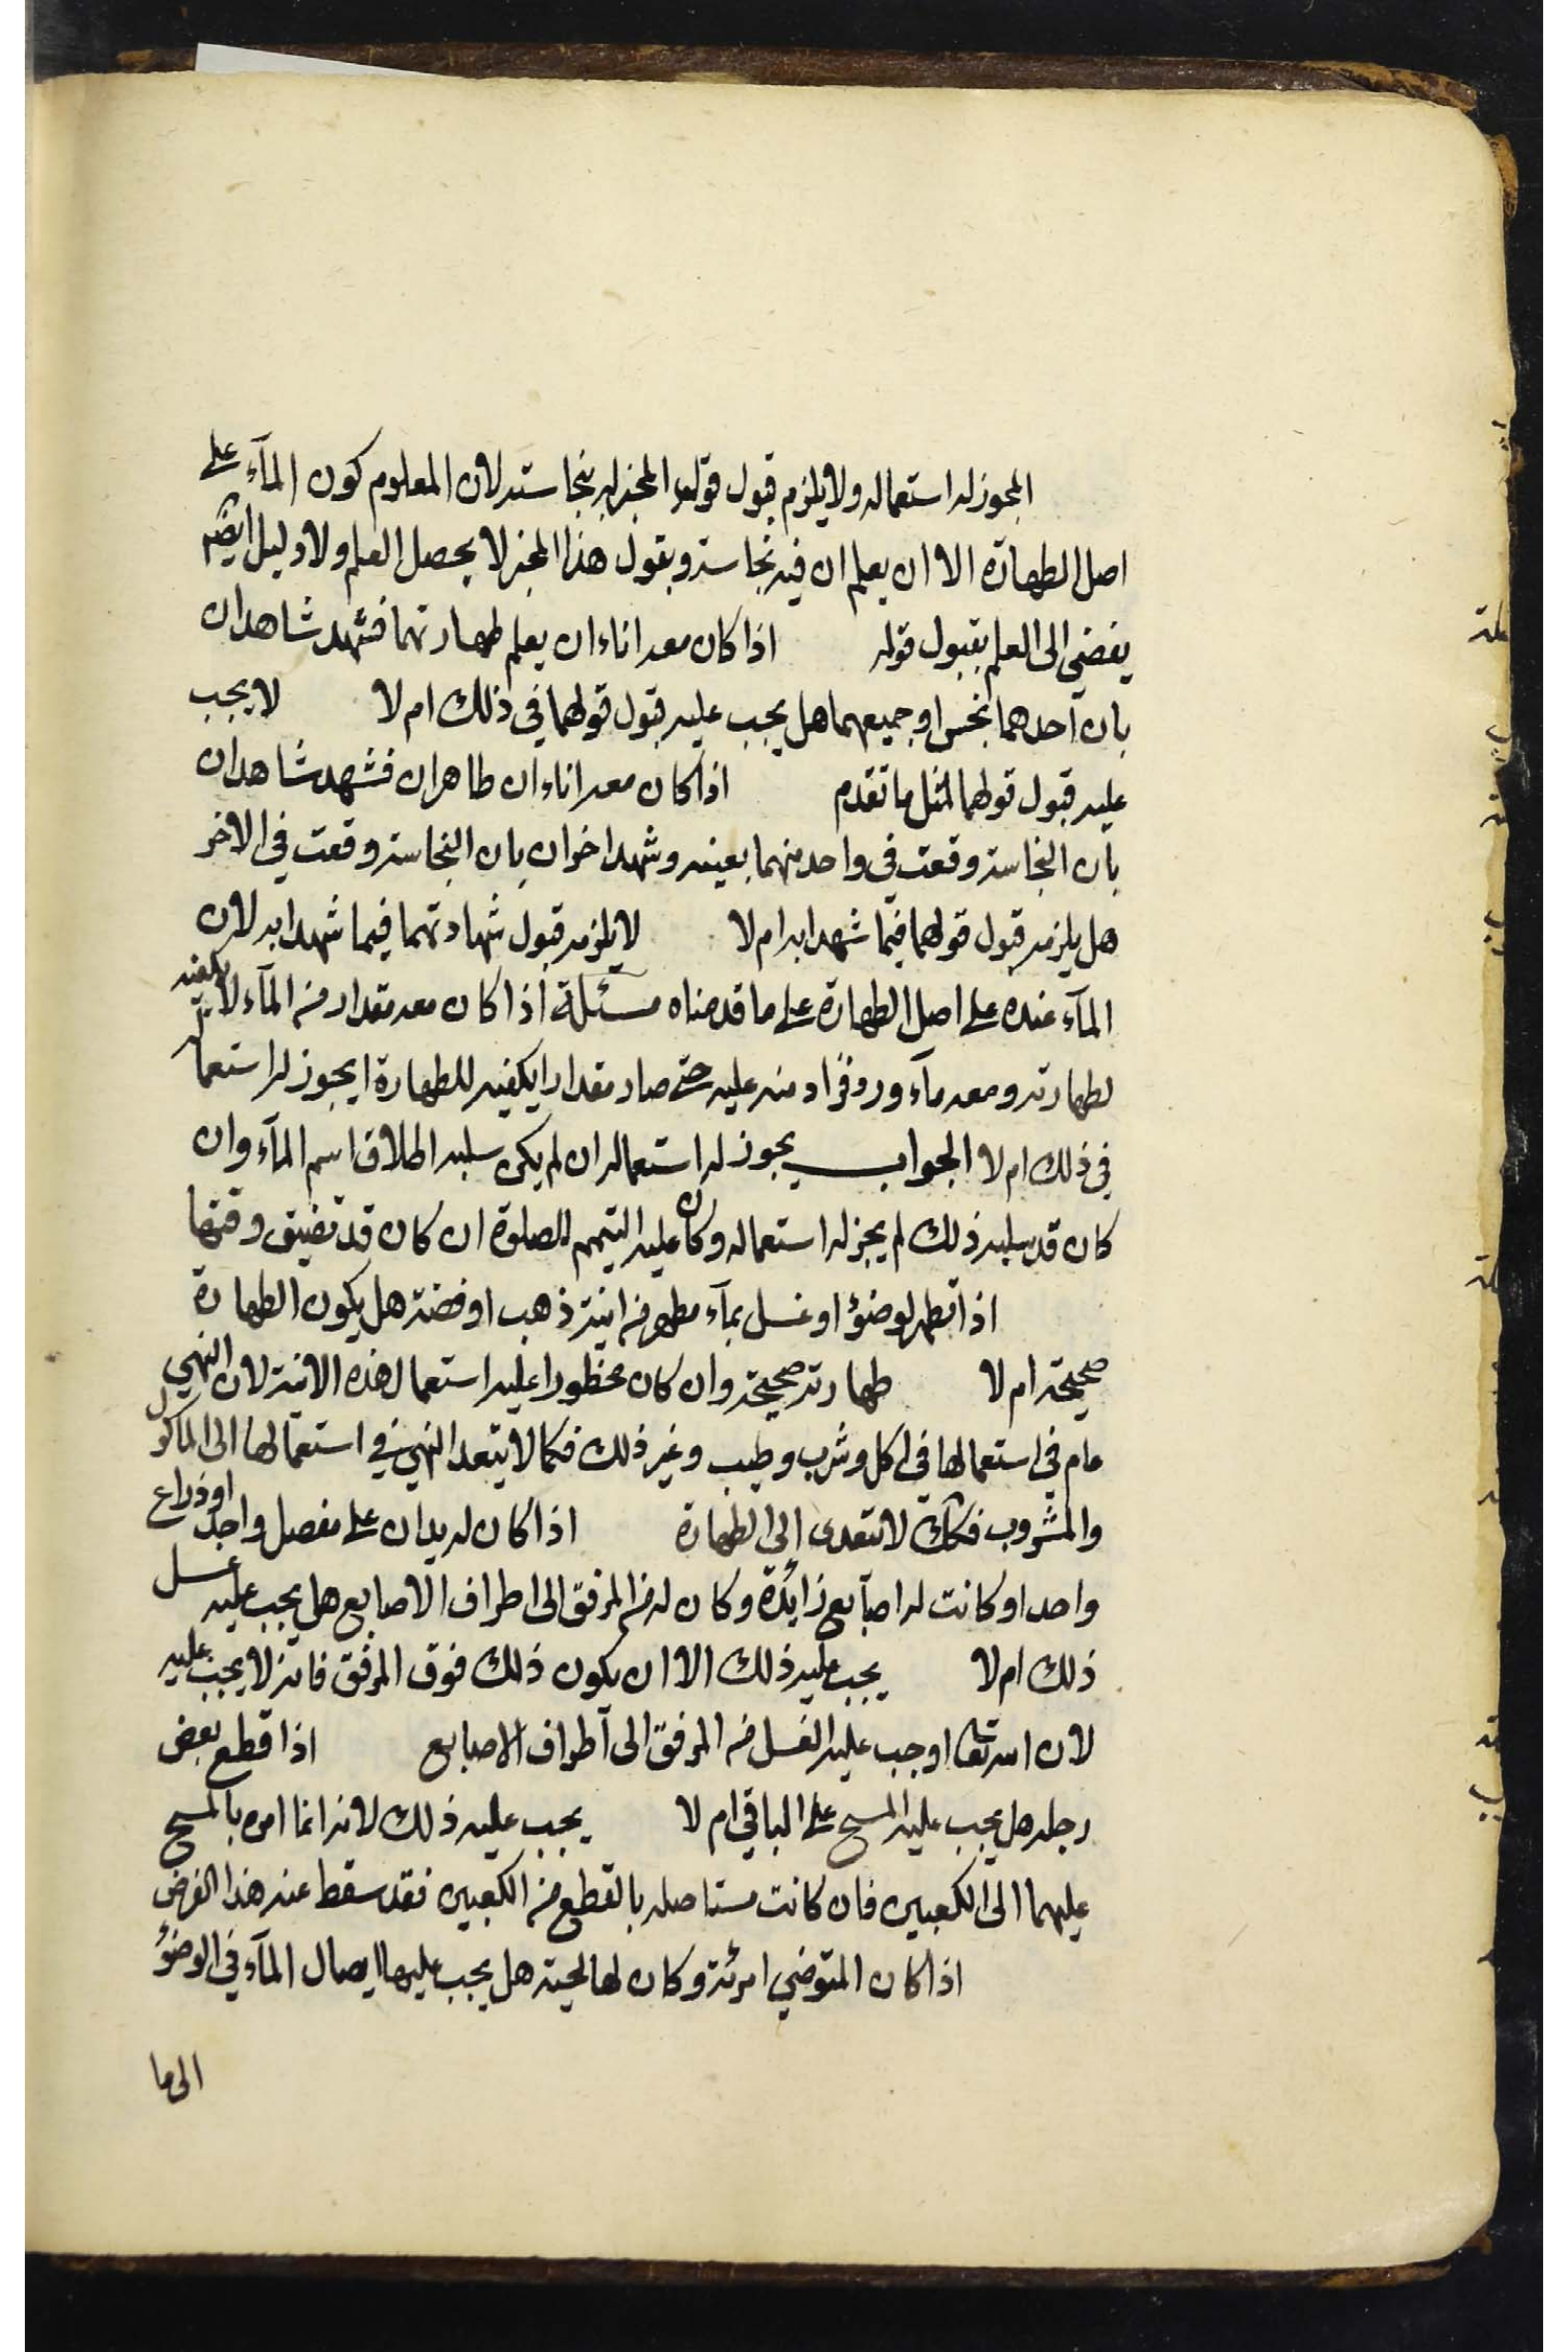 المجوز له استعماله ولا يلزم قبول قوله المخبر له بنجاسته لان المعلوم كون المآء على
اصل الطهارة الا ان يعلم ان فيه نجاسة وبقول هذا المخبر لا يحصل العلم ولا دليل ايضم
يفضي الى العلم بقبول قوله اذا كان معه اناءان يعلم طهارتهما فشهد شاهدان
بان احدهما نجس او جميعهما هل يجب عليه قبول قولهما في ذلك ام لا لا يجب
عليه قبول قولهما لمثل ما تقدم اذا كان معه اناءان طاهران فشهد شاهدان
بان النجاسة وقعت في واحد منهما بعينه وشهد اخران بان النجاسة وقعت في الاخر
هل يلزمه قبول قولهما فيما شهدا به ام لا لا يلزمه قبول شهادتهما فيما شهدا به لان
المآء عنده على اصل الطهارة على ما قدمناه مسئلة اذا كان معه مقدار من المآء لا يكفيه
لطهارته ومعه مآء ورد فزاد منه عليه حتى صار مقدارا يكفيه للطهارة ايجوز له استعما
في ذلك ام لا الجواب يجوز له استعماله ان لم يكن سلبه اطلاق اسم المآء وان
كان قد سلبه ذلك لم يجز له استعماله وكان عليه التيمم للصلوة ان كان قد تضيق وقتها
اذا تطهر لوضؤ او غسل بمآء مطهر من انية ذهب او فضة هل يكون الطهارة
صحيحة ام لا طهارته صحيحة وان كان محظورا عليه استعمال هذه الانية لان النهي
عام في استعمالها في اكل وشرب وطيب وغير ذلك فكما لا يتعدا النهي في استعمالها الى الماكول
والمشروب فكك لا تتعدى الى الطهارة اذا كان له يدان على مفصل واحد او ذراع
واحد او كانت له اصآبع زايدة وكان له من المرفق الى اطراف الاصابع هل يجب عليه غسل
ذلك ام لا يجب عليه ذلك الا ان يكون ذلك فوق المرفق فانه لا يجب عليه
لان الله تعا اوجب عليه الغسل من المرفق الى اطراف الاصابع اذا قطع بعض
رجله هل يجب عليه المسح على الباقي ام لا يجب عليه ذلك لانه انما امره بالمسح
عليهما الى الكعبين فان كانت مستاصله بالقطع من الكعبين فقد سقط عنه هذا الفرض
اذا كان المتوضي امرئة وكان لها لحية هل يجب عليها ايصال المآء في الوضؤ
الى ما